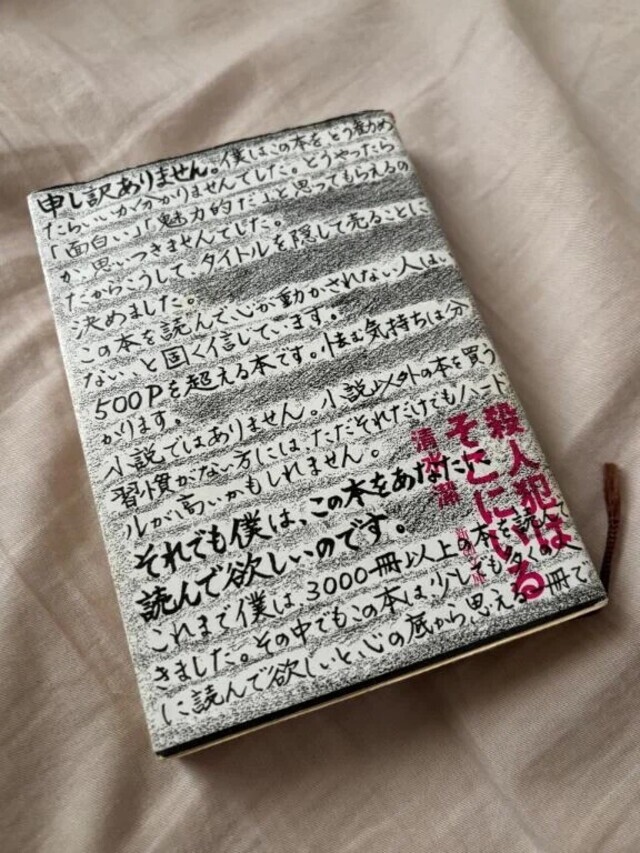 申し訳ありません。僕はこの本を、どう勧め
たらいいか分かりませんでした。どうやったら
「面白い」「魅力的だ」と思ってもらえるの
か、思いつきませんでした。
だからこうして、タイトルを隠して売ることに
決めました。
この本を読んで心が動かされない人はい
ないと固く信じています。
500Pを超える本です。怯む気持ちは分
かります。
小説ではありません。小説以外の本を買う
習慣がない方には、ただそれだけでもハード
ルが高いかもしれません。
それでも僕は、この本をあなたに
読んで欲しいのです。
これまで僕は、3000冊以上の本を読んで
きました。その中でもこの本は、少しでも多くの人
に読んで欲しいと心の底から思える一冊で
殺人犯は
そこにいる
清水潔